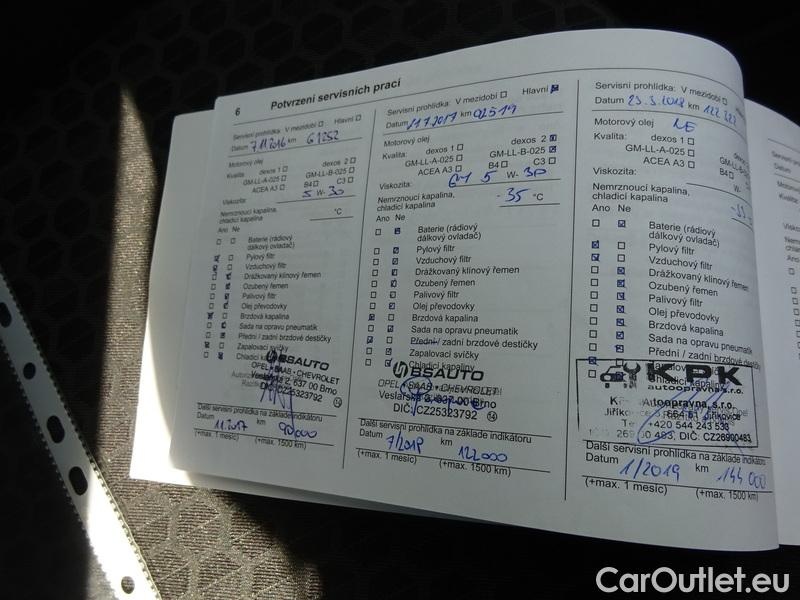 6 Potvrzení servisních prací
Servisní prohlídka: V mezidobí Hlavní
Datum 7.11.2016 km 61252
Motorový olej
dexos 1 dexos 2
Kvalita GM-LL-A-025 GM-LL-B-025
ACEA A3 B4 C3
Viskozita: 5 W- 30
Nemrznoucí kapalina,
chladicí kapalina °C
Ano Ne
Baterie (rádiový
dálkový ovladač)
Pylový filtr
Vzduchový filtr
Drážkovaný klínový řemen
Ozubený řemen
Palivový filtr
Olej převodovky
Brzdová kapalina
Sada na opravu pneumatik
Přední / zadní brzdové destičky
Zapalovací svíčky
Chladicí
SSAUTO
OPEL • SAAB • CHEVROLET
Veslařská 637 00 Brno
DIČ: CZ25323792
Další servisní prohlídka na základě indikátoru
Datum 11.2017 km 90000
(+max. 1 měsíc) (+max. 1500 km)
Servisní prohlídka: V mezidobí Hlavní
Datum 21.7.2017 km 92519
Motorový olej
dexos 1 dexos 2
Kvalita: GM-LL-A-025 GM-LL-B-025
ACEA A3 B4 C3
Viskozita: 5 W- 30
Nemrznoucí kapalina,
chladicí kapalina -35 °C
Ano Ne
Baterie (rádiový
dálkový ovladač)
Pylový filtr
Vzduchový filtr
Drážkovaný klínový řemen
Ozubený řemen
Palivový filtr
Olej převodovky
Brzdová kapalina
Sada na opravu pneumatik
Přední / zadní brzdové destičky
Zapalovací svíčky
Chladicí kapaliny
SSAUTO
OPEL • SAAB • CHEVROLET
Veslařská 637 00 Brno
DIČ: CZ25323792
14
Další servisní prohlídka na základě indikátoru
Datum 7/2018 km 122000
(+max. 1 měsíc) (+max. 1500 km)
Servisní prohlídka: V mezidobí Hlavní
Datum 23.3.2018 km 122322
Motorový olej
dexos 1
Kvalita: GM-LL-A-025 GM-LL-B-025
ACEA A3 B4
Viskozita: W-
Nemrznoucí kapalina,
chladicí kapalina
Ano Ne
Baterie (rádiový
dálkový ovladač)
Pylový filtr
Vzduchový filtr
Drážkovaný klínový řemen
Ozubený řemen
Palivový filtr
Olej převodovky
Brzdová kapalina
Sada na opravu pneumatik
Přední / zadní brzdové
KPK
Autoopravna, s.r.o.
Jiříkovice 664 51 Jiříkovice
+420 544 243 533
DIČ: CZ26900483
Další servisní prohlídka na základě indikátoru
Datum 1/2019 km 144 000
(+max. 1 měsíc) (+max. 1500 km)
CarOutlet.eu